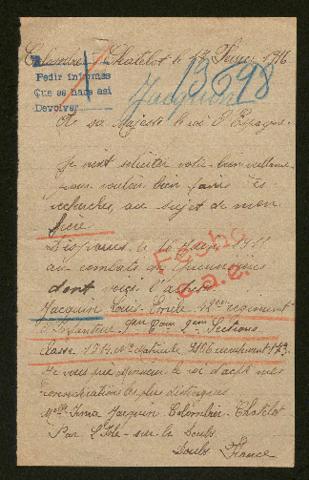 Colombier Chatelot le 27 Fevrier 1916
Pedir informes
Que se hace asi
Devolver
13698
Jacquin
A sa Majesté le roi d'Espagne.
Je vient solliciter votre bienveillance
pour vouloir bien faire des
recherches au sujet de mon
frère
Disparus le 16
au combats de
dont voici l'adresse
Jacquin Louis Emile 42em regiment
d'Infanterie 9em Com 2em Sections
Classe 1914 No Matricule recrutement
Je vous prie Monsieur le roi d'agréé mes
considérations les plus distinguées
Melle Irma Jacquin Colombier-Chatelot
Par L'Isle-sur le Doubs
Doubs France
Fecho